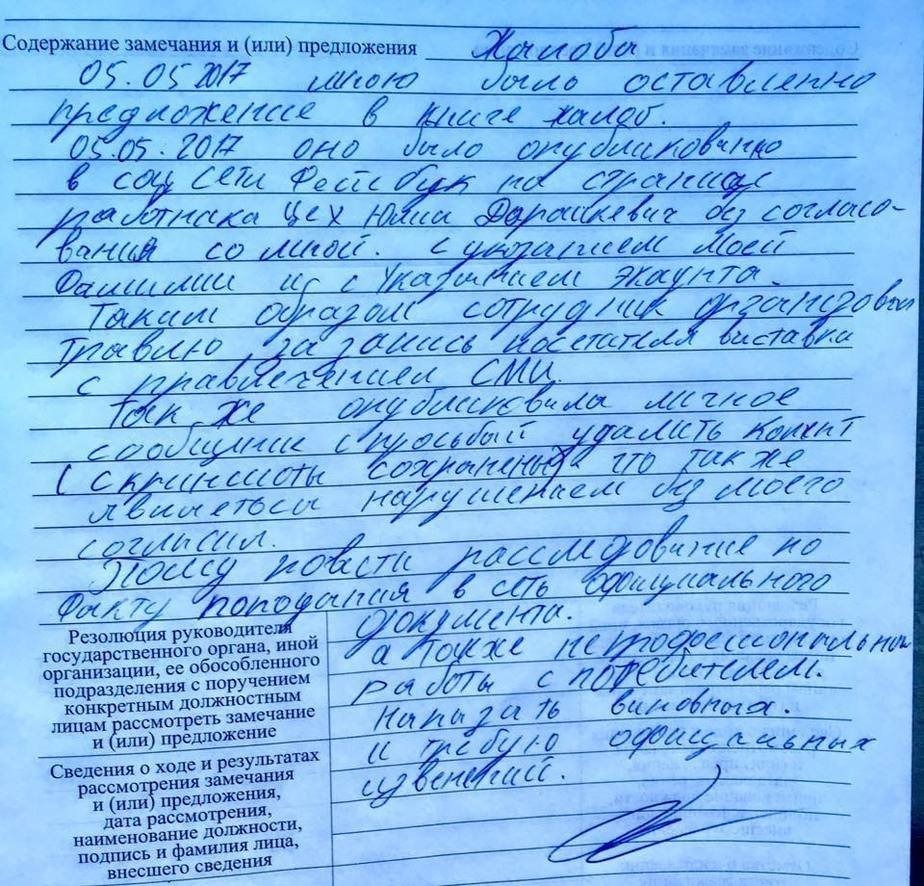 Содержание замечания и (или) предложения Жалоба
05.05 2017 мною было оставленно
предложение в книге жалоб.
05.05.2017 оно было опубликованно
в соц сети Фейсбук на странице
работника Цех Юлия Дарашкевич без согласо-
вания со мной. с указанием моей
Фамилии и с Указанием экаунта.
Таким образом сотрудник организовал
травлю за запись посетителя выставки
с правлечением СМИ.
Так же опубликовила личное
сообщение с просьбай удалить контент
(скриншоты сохранены) что также
являеться нарушением без моего
согласия.
Прошу повести расследование по
Факту поподания в сеть официального
документа.
а также непрофессиональной
работы с потребителем.
Наказать виновных.
и требую официальных
извенений.
Резолюция руководителя
государственного органа, иной
организации, ее обособленного
подразделения с поручением
конкретным должностным
лицам рассмотреть замечание
и (или) предложение
Сведения о ходе и результатах
рассмотрения замечания
и (или) предложения,
дата рассмотрения,
наименование должности,
подпись и фамилия лица,
внесшего сведения